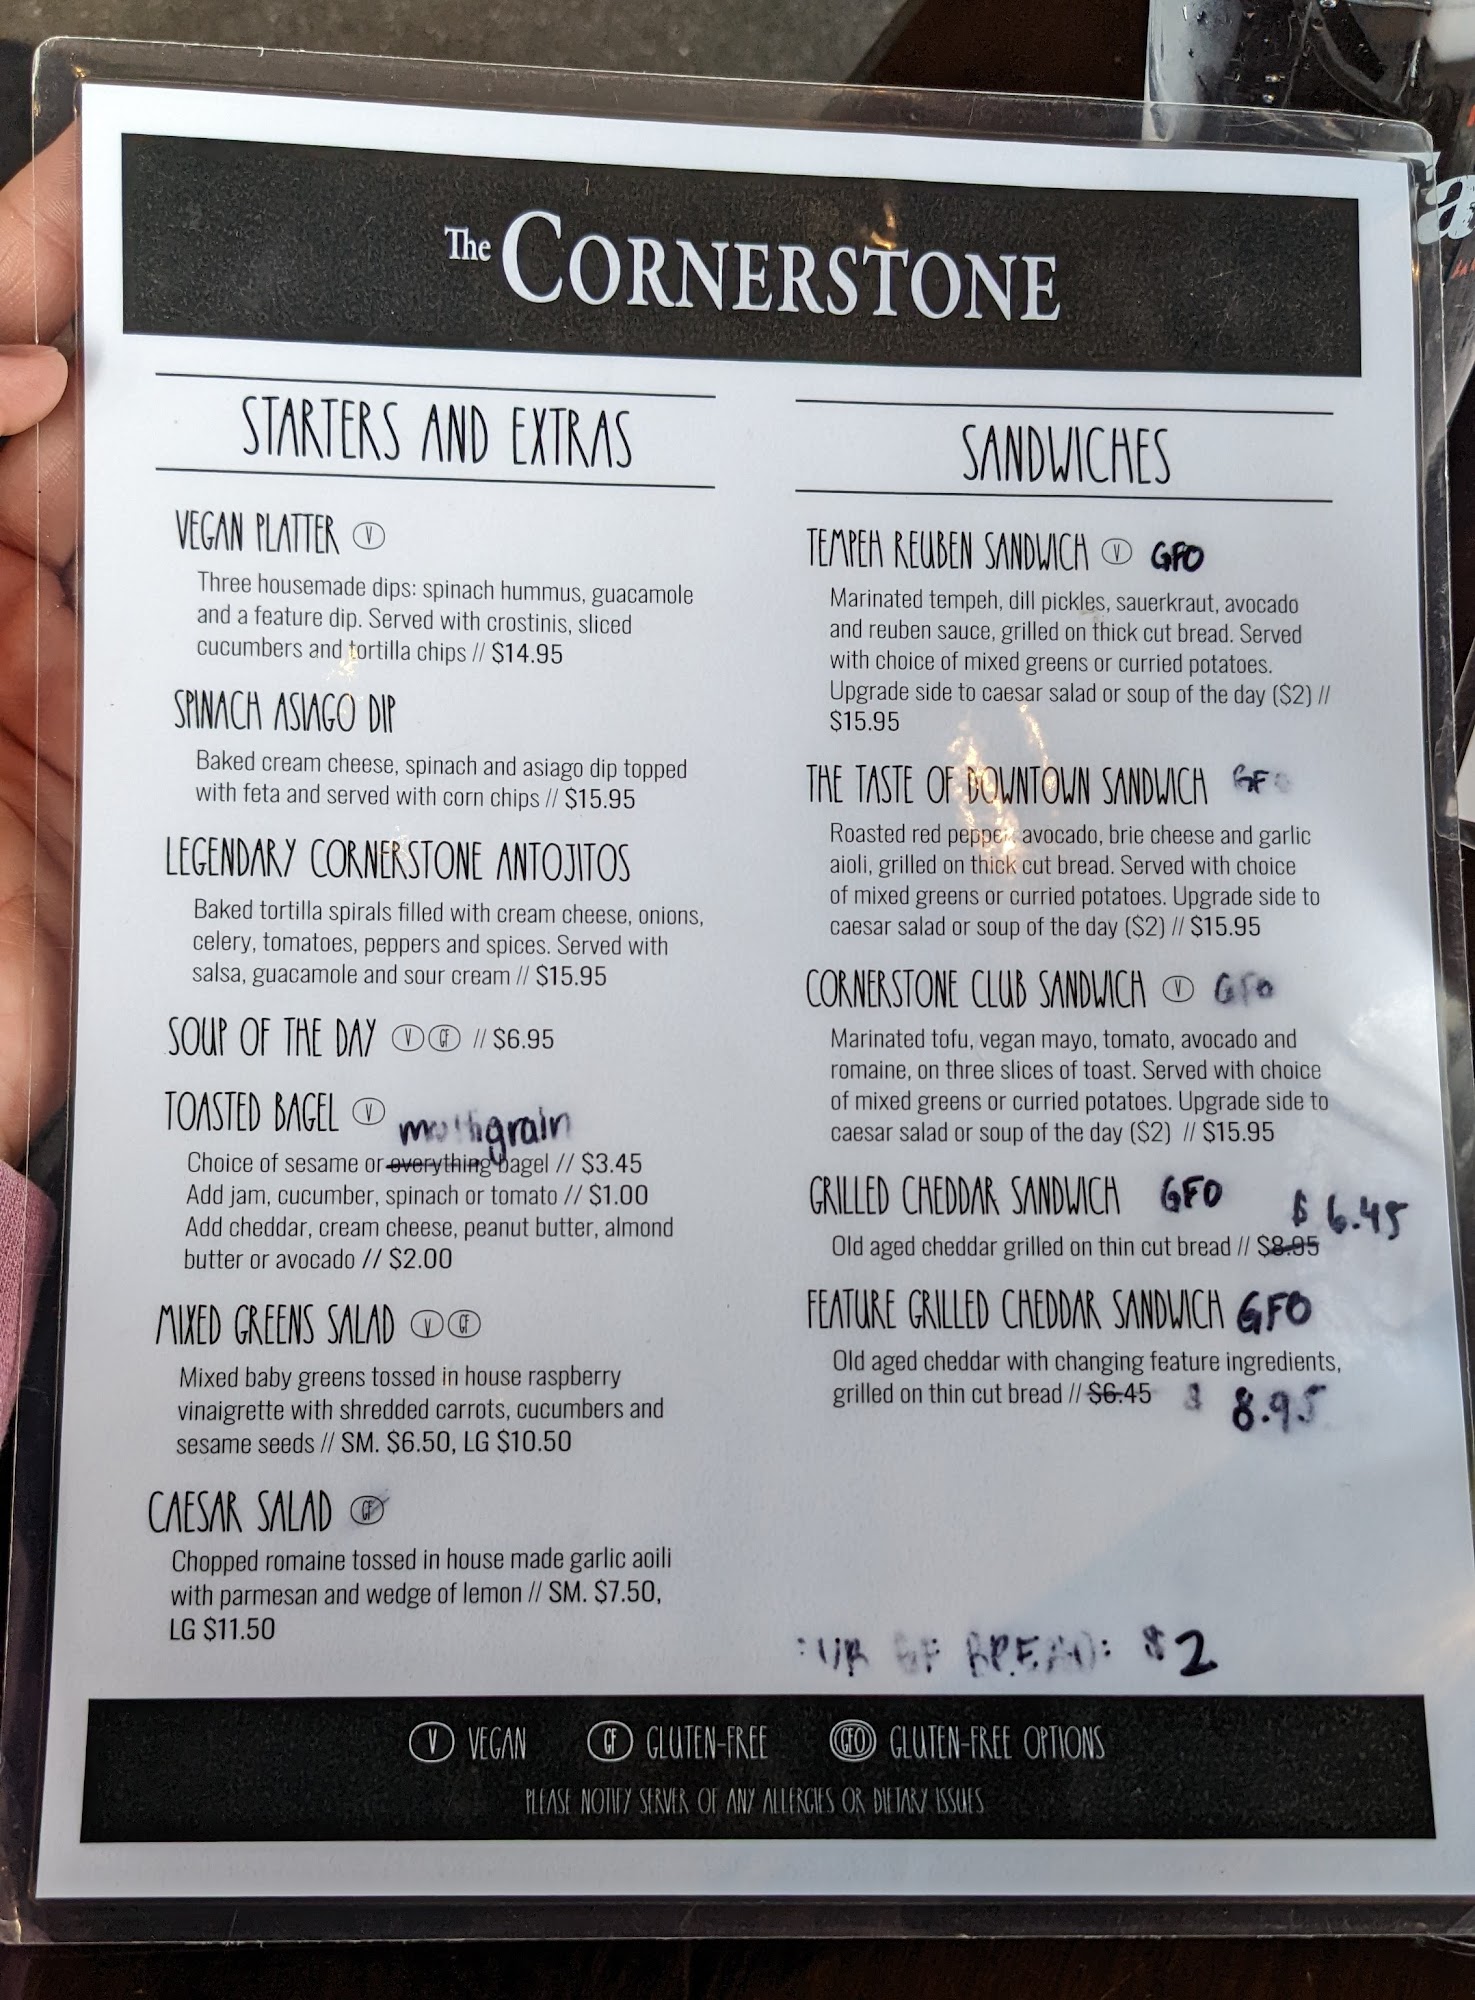 The CORNERSTONE
STARTERS AND EXTRAS
VEGAN PLATTER V
Three housemade dips: spinach hummus, guacamole
and a feature dip. Served with crostinis, sliced
cucumbers and tortilla chips // $14.95
SPINACH ASIAGO DIP
Baked cream cheese, spinach and asiago dip topped
with feta and served with corn chips // $15.95
LEGENDARY CORNERSTONE ANTOJITOS
Baked tortilla spirals filled with cream cheese, onions,
celery, tomatoes, peppers and spices. Served with
salsa, guacamole and sour cream // $15.95
SOUP OF THE DAY V GF // $6.95
TOASTED BAGEL V multigrain
Choice of sesame or everything bagel // $3.45
Add jam, cucumber, spinach or tomato // $1.00
Add cheddar, cream cheese, peanut butter, almond
butter or avocado // $2.00
MIXED GREENS SALAD V GF
Mixed baby greens tossed in house raspberry
vinaigrette with shredded carrots, cucumbers and
sesame seeds // SM. $6.50, LG $10.50
CAESAR SALAD GF
Chopped romaine tossed in house made garlic aoili
with parmesan and wedge of lemon // SM. $7.50,
LG $11.50
SANDWICHES
TEMPEH REUBEN SANDWICH V GFO
Marinated tempeh, dill pickles, sauerkraut, avocado
and reuben sauce, grilled on thick cut bread. Served
with choice of mixed greens or curried potatoes.
Upgrade side to caesar salad or soup of the day ($2) //
$15.95
THE TASTE OF DOWNTOWN SANDWICH GFO
Roasted red pepper, avocado, brie cheese and garlic
aioli, grilled on thick cut bread. Served with choice
of mixed greens or curried potatoes. Upgrade side to
caesar salad or soup of the day ($2) // $15.95
CORNERSTONE CLUB SANDWICH V GFO
Marinated tofu, vegan mayo, tomato, avocado and
romaine, on three slices of toast. Served with choice
of mixed greens or curried potatoes. Upgrade side to
caesar salad or soup of the day ($2) // $15.95
GRILLED CHEDDAR SANDWICH GFO $6.45
Old aged cheddar grilled on thin cut bread // $8.95
FEATURE GRILLED CHEDDAR SANDWICH GFO
Old aged cheddar with changing feature ingredients,
grilled on thin cut bread // $6.45 $ 8.95
GF BREAD: $2
V VEGAN GF GLUTEN-FREE GFO GLUTEN-FREE OPTIONS
PLEASE NOTIFY SERVER OF ANY ALLERGIES OR DIETARY ISSUES